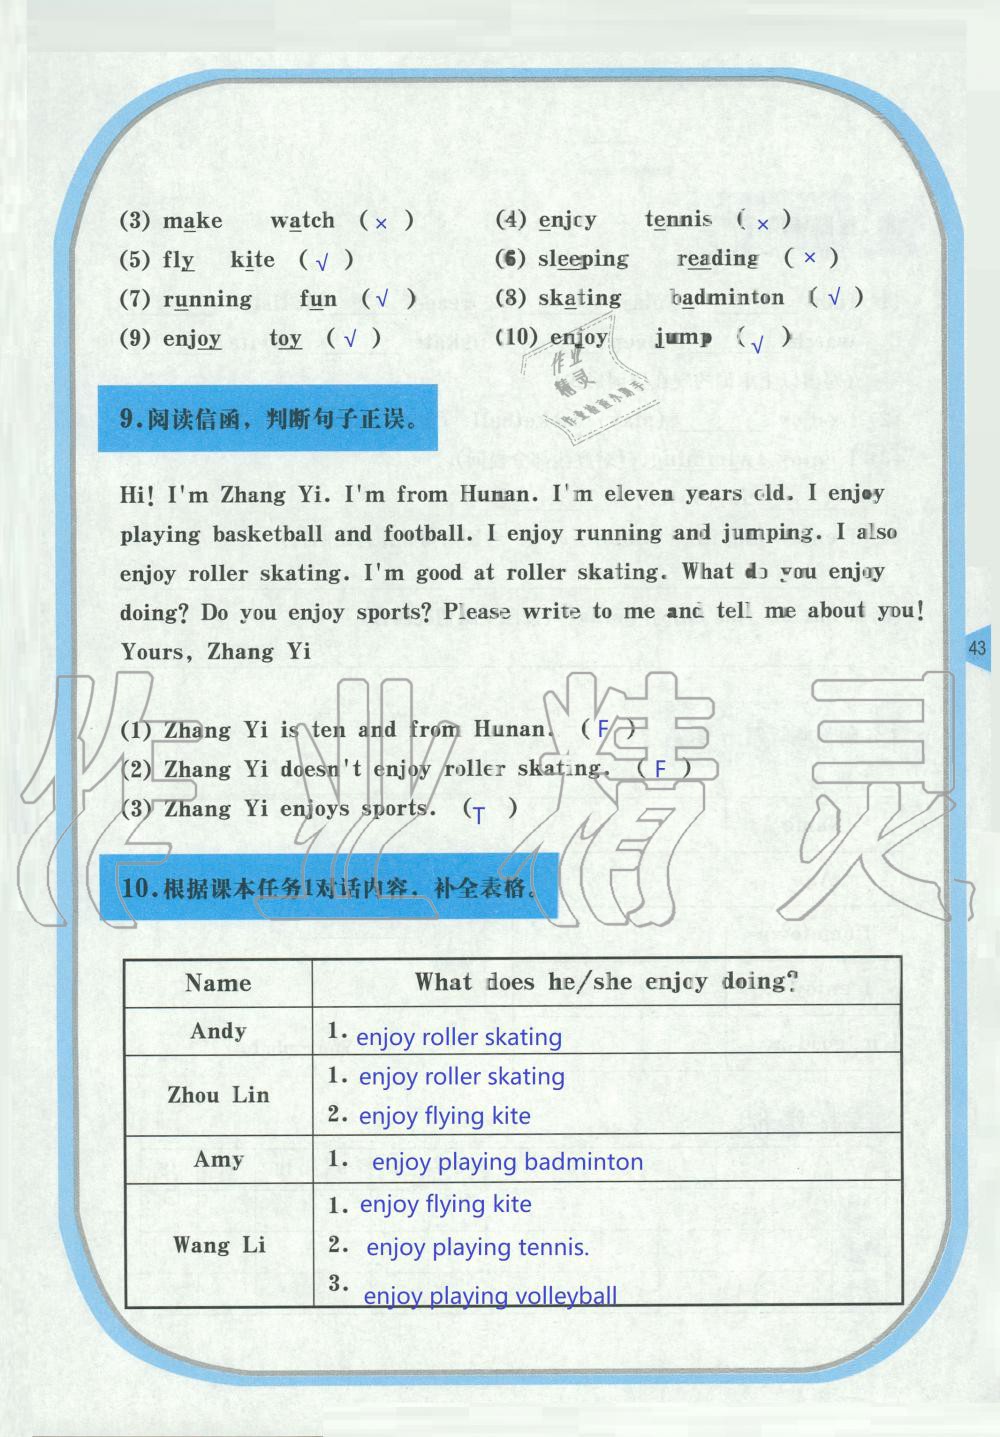 (3) make watch ( × )
(4) enjoy tennis ( × )
(5) fly kite ( √ )
(6) sleeping reading ( × )
(7) running fun ( √ )
(8) skating badminton ( √ )
(9) enjoy toy ( √ )
(10) enjoy jump ( √ )
作业
精灵
9.阅读信函，判断句子正误。
Hi! I'm Zhang Yi. I'm from Hunan. I'm eleven years old. I enjoy
playing basketball and football. I enjoy running and jumping. I also
enjoy roller skating. I'm good at roller skating. What do you enjoy
doing? Do you enjoy sports? Please write to me and tell me about you!
Yours, Zhang Yi
43
(1) Zhang Yi is ten and from Hunan. ( F )
(2) Zhang Yi doesn't enjoy roller skating. ( F )
(3) Zhang Yi enjoys sports. ( T )
作业精灵
10.根据课本任务1对话内容，补全表格。
Name What does he/she enjoy doing?
Andy 1. enjoy roller skating
Zhou Lin 1. enjoy roller skating
2. enjoy flying kite
Amy 1. enjoy playing badminton
Wang Li 1. enjoy flying kite
2. enjoy playing tennis.
3. enjoy playing volleyball